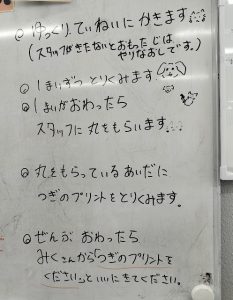 ゆっくり、ていねいに かきます
(スタッフがきたないとおもったじは
やりなおしです。)
1まいずつ とりくみます
1まいがおわったら
スタッフに丸をもらいます。
丸をもらっているあいだに
つぎのプリントをとりくみます。
ぜんぶ おわったら
みくさんから「つぎのプリントを
ください」といいにきてください。